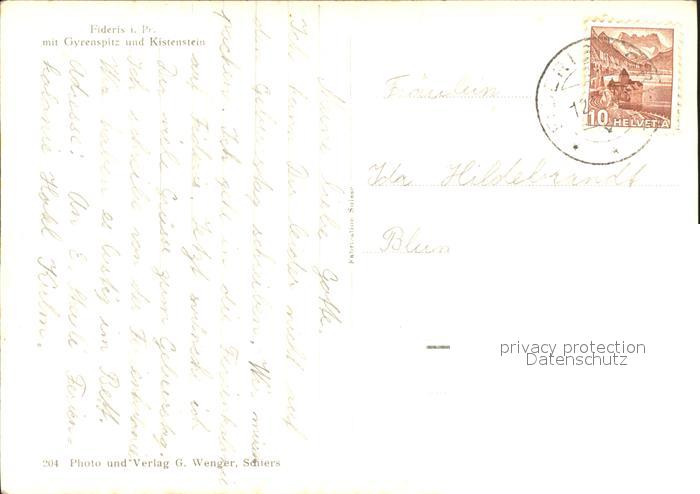 Fideris i. Pr.
mit Gyrenspitz und Kistenstein
Meine liebe Gotte.
Ich kann Dir leider nicht auf
den Geburtstag schreiben. Wir müssen
packen. Ich geh in die Ferienkolonie
auf Fideris. Jetzt wünsch ich
Dir viele Grüsse zum Geburtstag.
Ich schreibe von der Ferienkolonie
Wir haben es lustig im Bett.
Adresse: An E. Ferien
kolonie Hotel Kulm.
204 Photo und Verlag G. Wenger, Schiers
Fabrication Suisse
Fräulein
Ida Hildebrandt
HELVETIA
10
privacy protection
Datenschutz